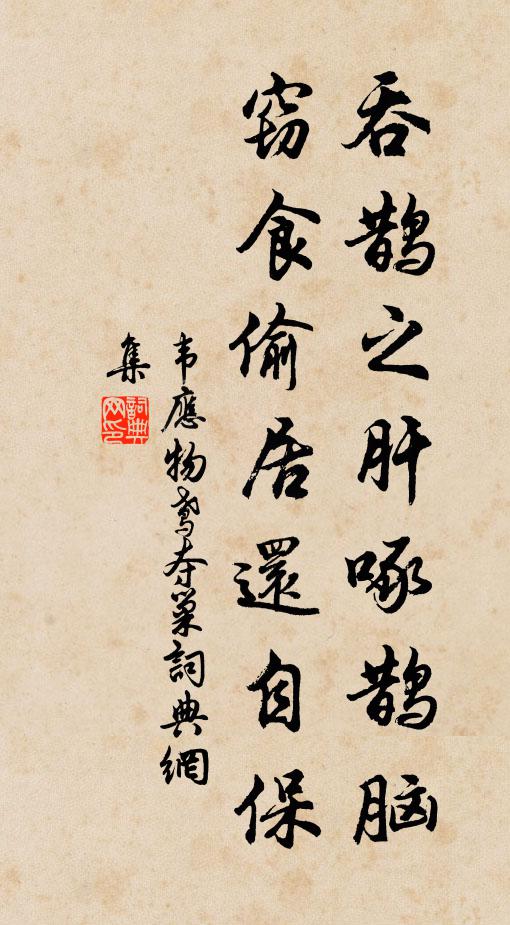 吞鹊之肝啄鹊脑
窃食偷居還自保
韦應物鸢夺巢詞典網
集
詞典网印